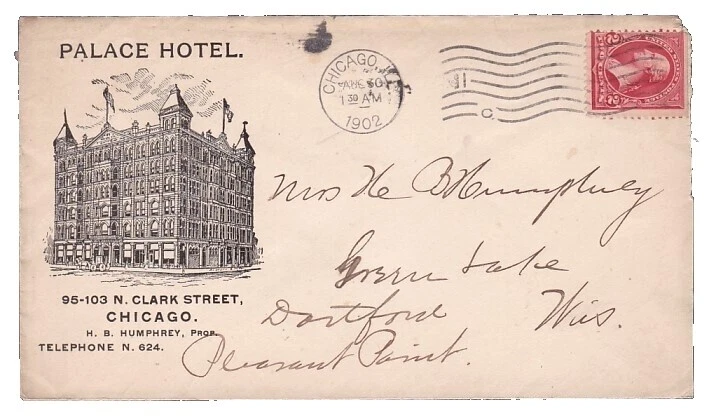 PALACE HOTEL.
95-103 N. CLARK STREET,
CHICAGO.
H. B. HUMPHREY, PROP.
TELEPHONE N. 624.
CHICAGO, ILL.
1 30 AM
1902
Mrs H B Humphrey
Green Lake
Dartford Wis.
Pleasant Point.